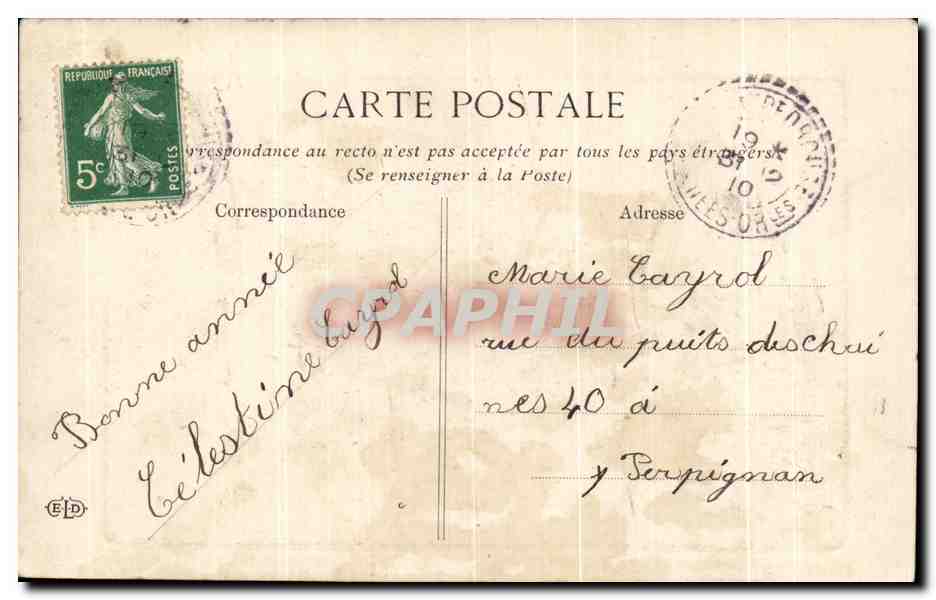 REPUBLIQUE FRANÇAISE
5c
POSTES
CARTE POSTALE
respondance au recto n'est pas acceptée par tous les pays étrangers
(Se renseigner à la Poste)
Correspondance
Adresse
19 *
31 12
10
NÉES-ORLES
Bonne année
Célestine Cayrol
Marie Cayrol
rue du puits des chai
nes 40 à
Perpignan
ELD
CPAPHIL